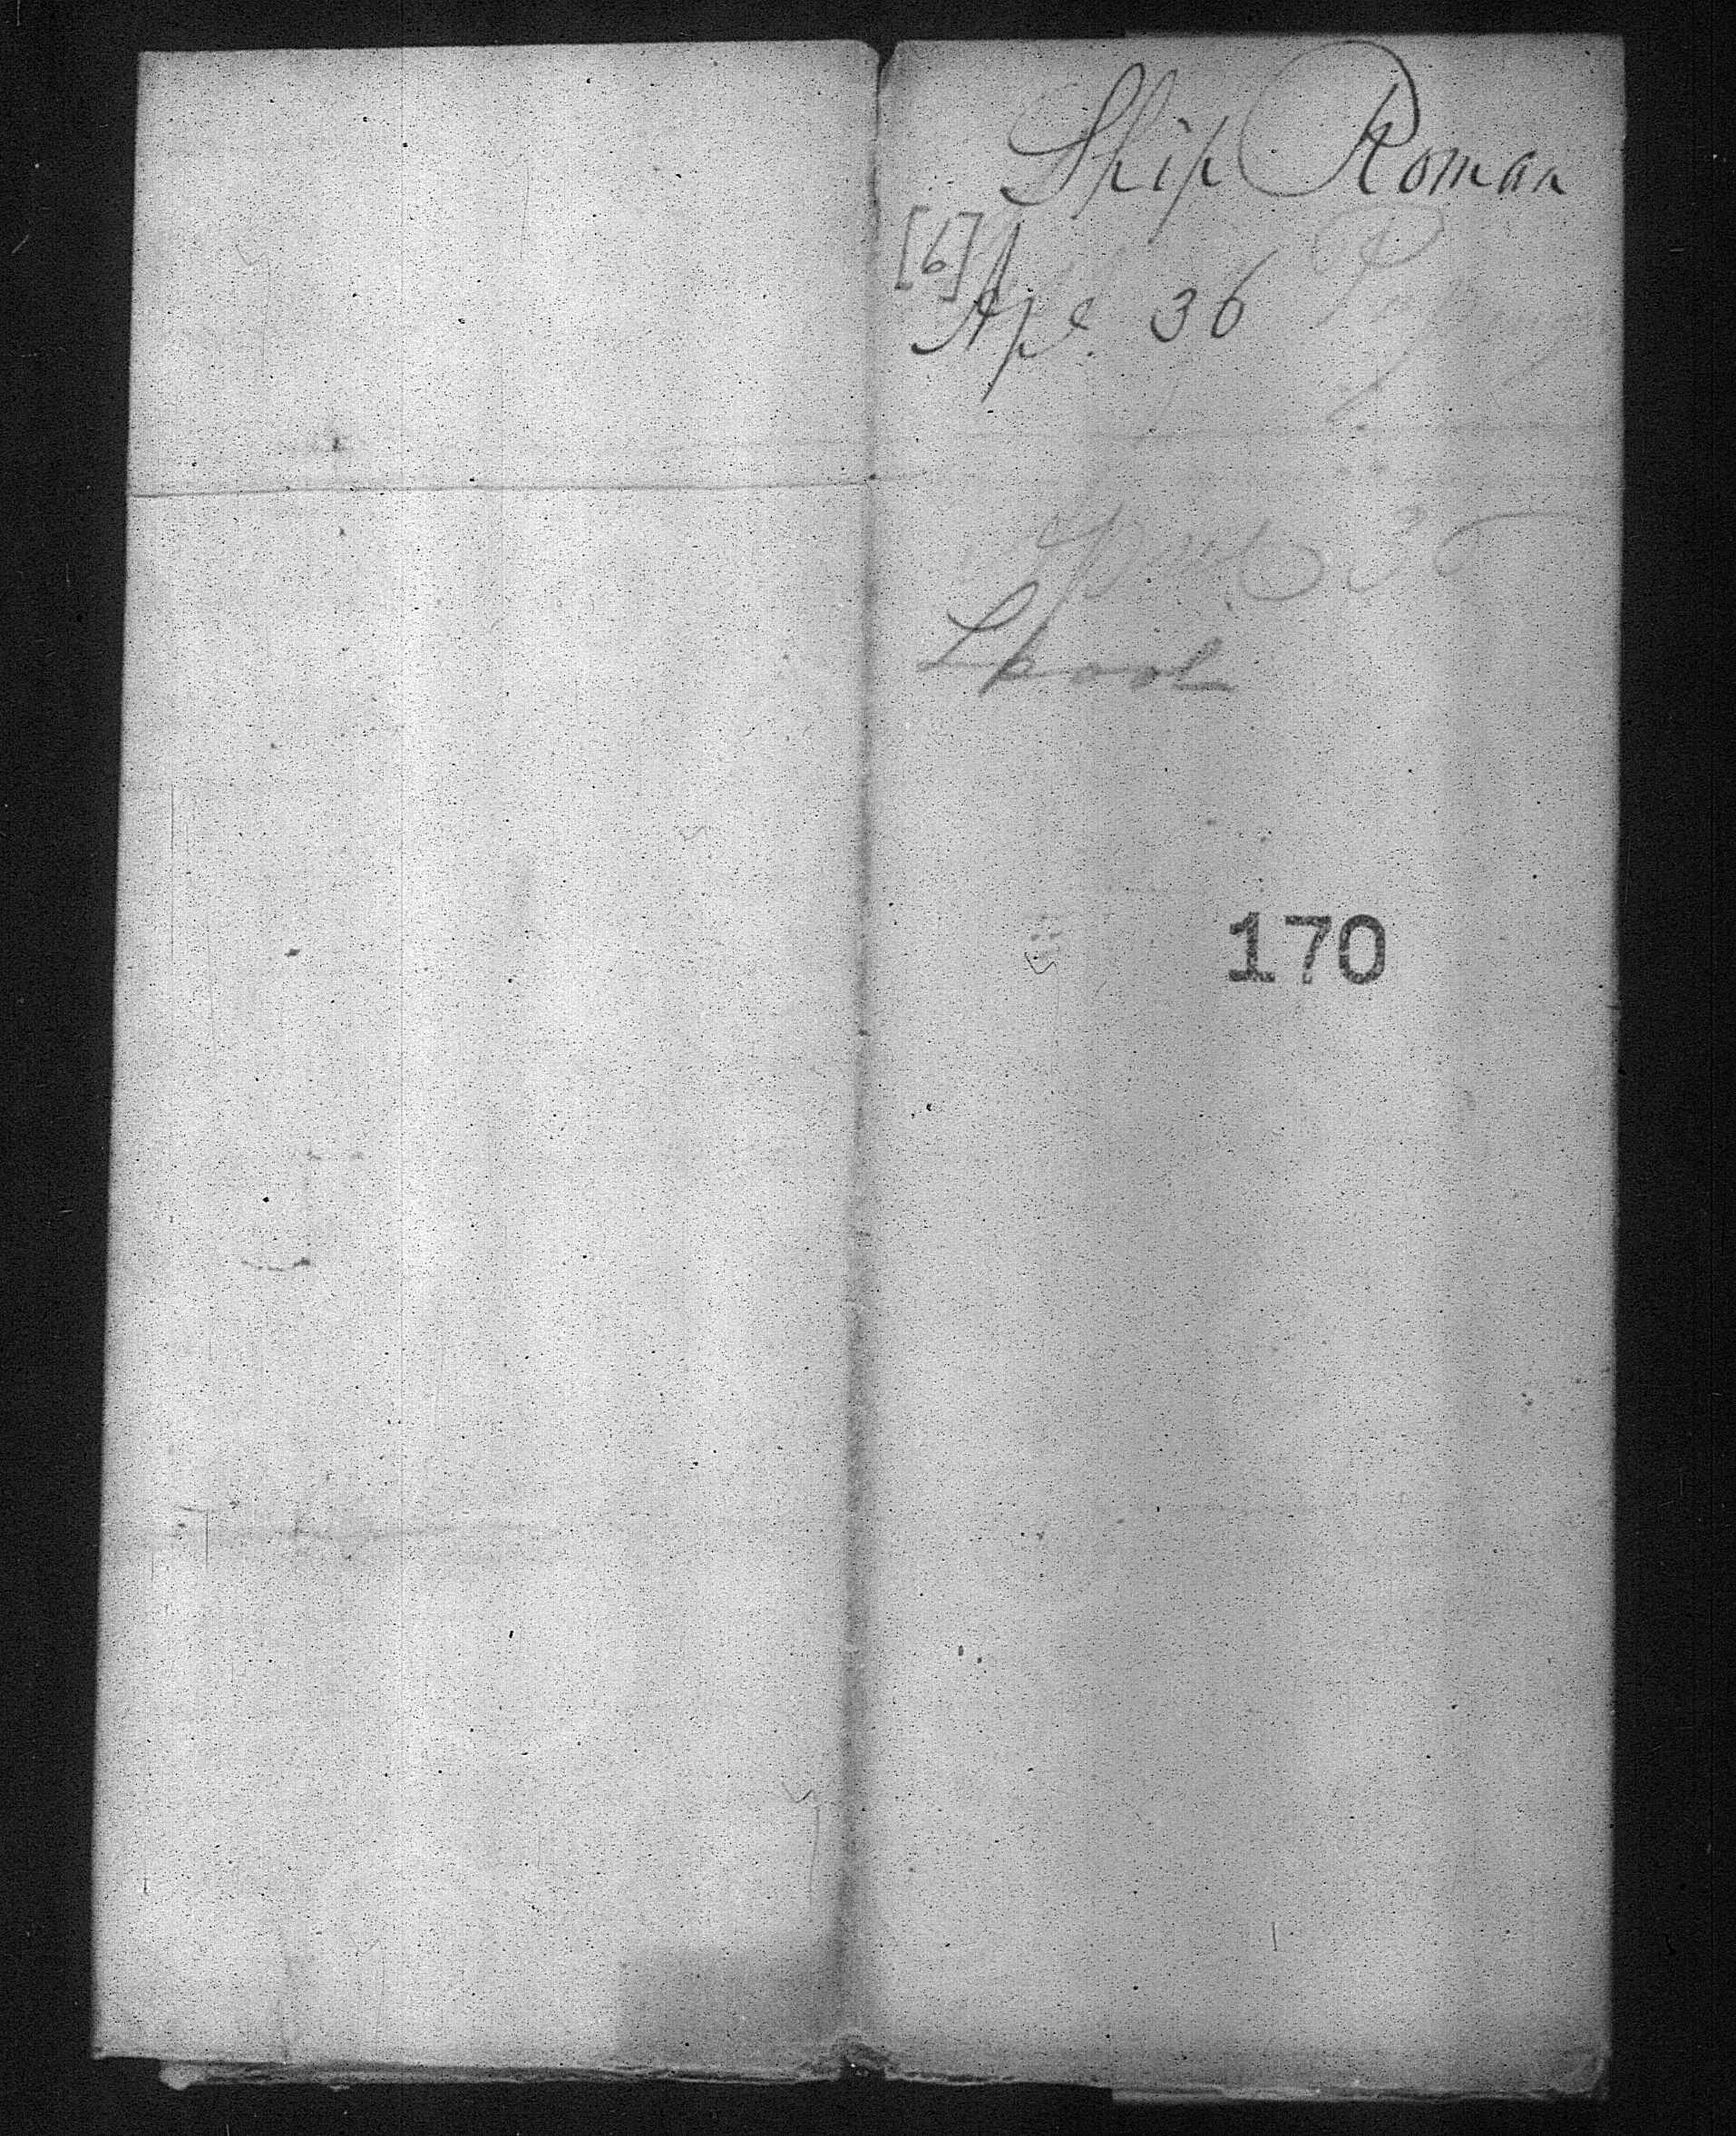 Ship Roman
[6]
Apl. 36
April 36
Lpool
170